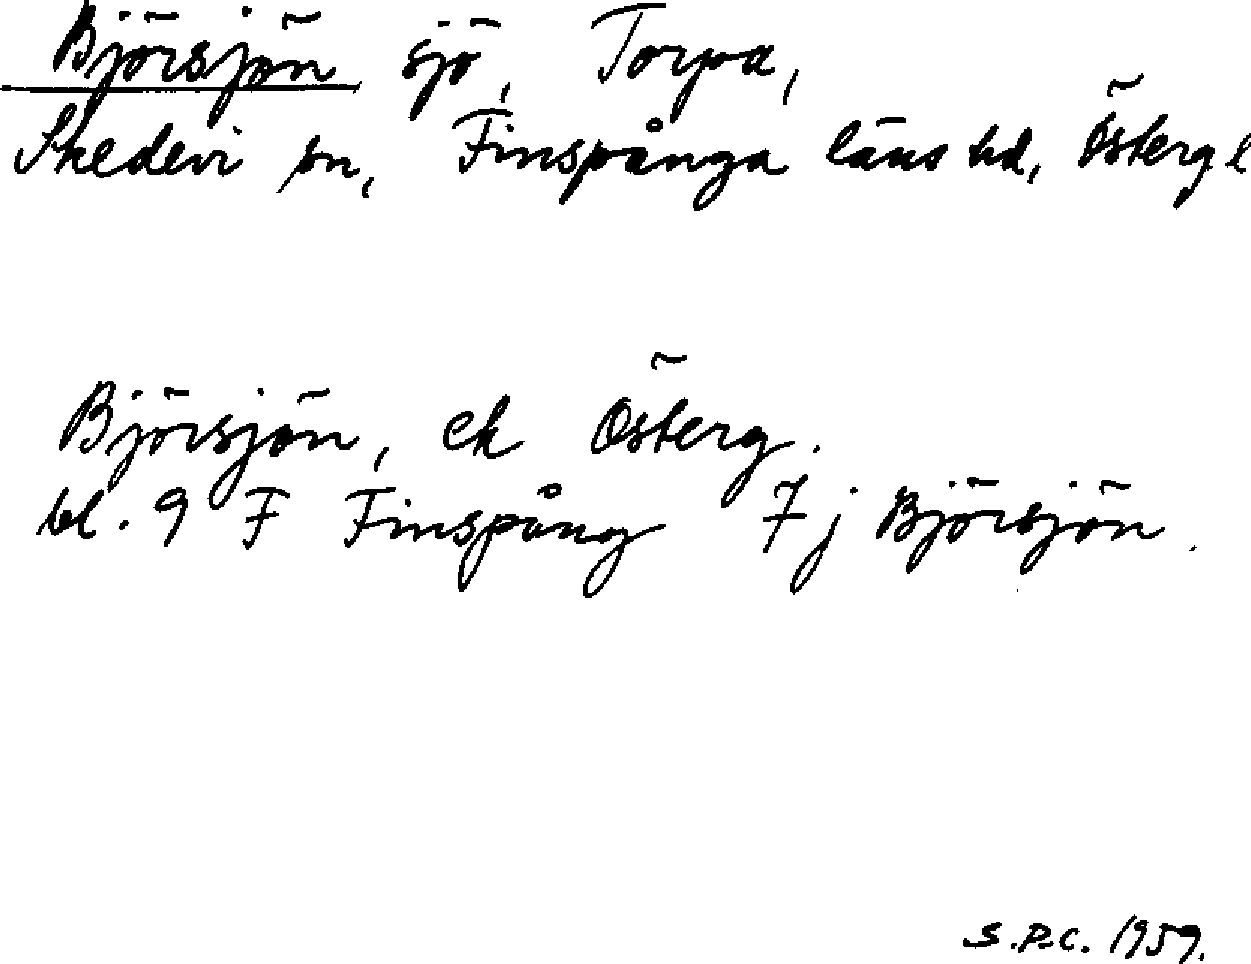 Björsjön, sjö, Torpa,
Skedevi sn, Finspånga läns hd, Östergl
Björsjön, ek Österg.
bl. 9 F Finspång 7j Björsjön.
S.P.C. 1959.